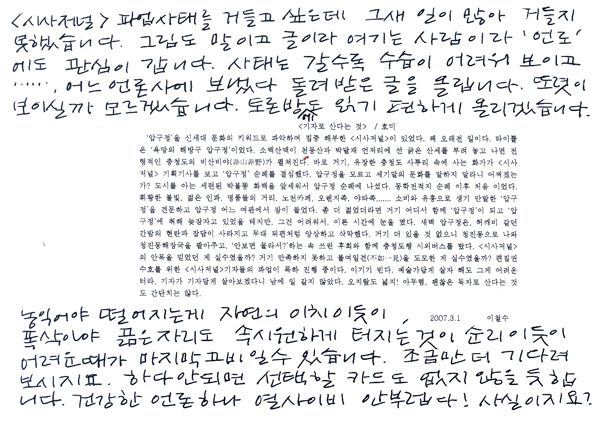 <시사저널> 파업사태를 거들고 싶은데 그새 일이 많아 거들지
못했습니다. 그림도 말이고 글이라 여기는 사람이라 '언론'
에도 관심이 갑니다. 사태는 갈수록 수습이 어려워 보이고
……, 어느 언론사에 보냈다 돌려받은 글을 올립니다. 또렷이
보이실까 모르겠습니다. 토론방에도 읽기 편하게 올리겠습니다.
<기자로 산다는 것> / 호미
'압구정'을 신세대 문화의 키워드로 파악하여 집중 해부한 <시사저널>이 있었다. 꽤 오래전 일이다. 타이틀
은 '욕망의 해방구 압구정'이었다. 소백산맥이 천둥산과 박달재 언저리에 선 굵은 산세를 부려 놓고 나면 전
형적인 충청도의 비산비야(非山非野)가 펼쳐진다. 바로 거기, 유장한 충청도 사투리 속에 사는 화가가 <시사
저널> 기획기사를 보고 '압구정' 순례를 결심했다. 압구정을 모르고 세기말의 문화를 말하지 말라니 어쩌겠는
가? 도시를 아는 세련된 박불똥 화백을 앞세워서 압구정 순례에 나섰다. 동학전적지 순례 이후 처음 이었다.
휘황한 불빛, 젊은 인파, 명품들의 거리, 노천카페, 오렌지족, 야타족....... 소비와 유흥으로 생기 만발한 '압구
정'을 견문하고 압구정 어느 여관에서 잠이 들었다. 좀 더 젊었더라면 거기 어디서 함께 '압구정'이 되고 '압구
정'에 취해 늦잠자고 있었을 테지만, 그건 어려워서, 이른 시간에 눈을 떴다. 새벽 압구정은, 허깨비 같던
간밤의 현란과 잡답이 사라지고 무대 뒤편처럼 앙상하고 삭막했다. 거기 더 있을 것 없으니 청진동으로 나와
청진동해장국을 팔아주고, '안보면 몰라서?'하는 속 쓰린 후회와 함께 충청도행 시외버스를 탔다. <시사저널>
의 안목을 믿었던 게 실수였을까? 거기 만족하지 못하고 불여일견(不如一見)을 도모한 게 실수였을까? 편집권
수호를 위한 <시사저널>기자들의 파업이 목하 진행 중이다. 이기기 빈다. 예술가답게 살자 해도 그게 어려운
터라, 기자가 기자답게 살아보겠다니 남에 일 같지 않았다. 오지랖도 넓지! 아무렴, 괜찮은 독자로 산다는 것
도 간단치는 않다.
2007.3.1 이철수
농익어야 떨어지는게 자연의 이치이듯이,
폭삭이야 품은자리도 속시원하게 터지는 것이 순리이듯이
어려운때가 마지막 고비일수 있습니다. 조금만 더 기다려
보시지요. 하다 안되면 선택할 카드도 없지 않을 듯 합
니다. 건강한 언론하나 열사이비 안부럽다! 사실이지요?